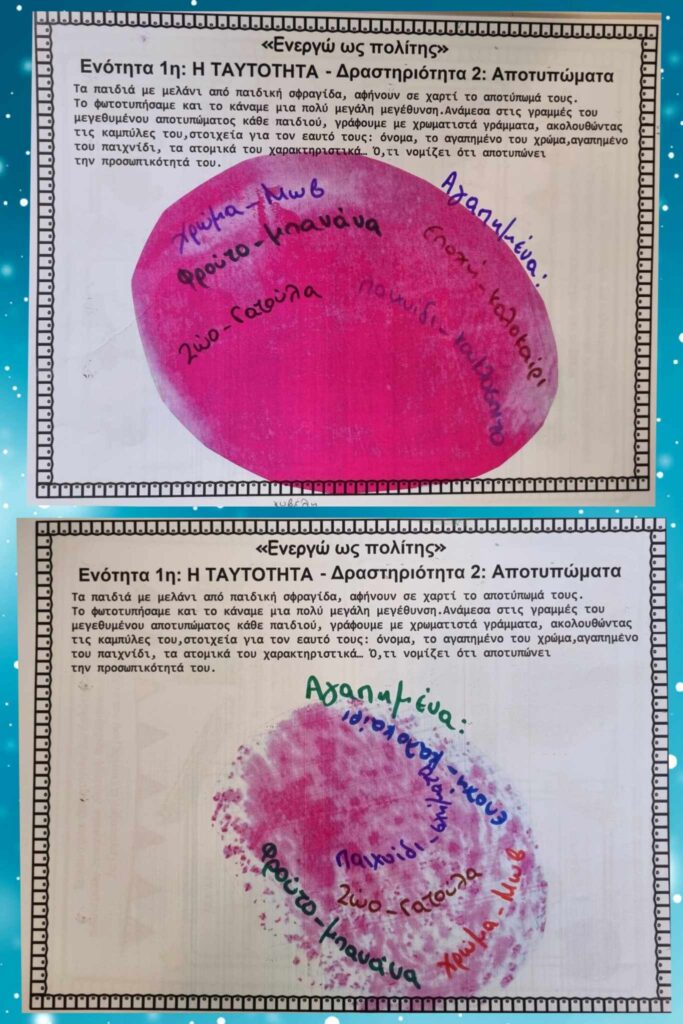 «Ενεργώ ως πολίτης»
Ενότητα 1η: Η ΤΑΥΤΟΤΗΤΑ - Δραστηριότητα 2: Αποτυπώματα
Τα παιδιά με μελάνι από παιδική σφραγίδα, αφήνουν σε χαρτί το αποτύπωμά τους.
Το φωτοτυπήσαμε και το κάναμε μια πολύ μεγάλη μεγέθυνση.Ανάμεσα στις γραμμές του
μεγεθυμένου αποτυπώματος κάθε παιδιού, γράφουμε με χρωματιστά γράμματα, ακολουθώντας
τις καμπύλες του,στοιχεία για τον εαυτό τους: όνομα, το αγαπημένο του χρώμα,αγαπημένο
του παιχνίδι, τα ατομικά του χαρακτηριστικά… Ό,τι νομίζει ότι αποτυπώνει
την προσωπικότητά του.
Αγαπημένα:
Χρώμα - Μωβ
Φρούτο - μπανάνα
Εποχή - καλοκαίρι
Ζώο - Γατούλα
Παιχνίδι -
«Ενεργώ ως πολίτης»
Ενότητα 1η: Η ΤΑΥΤΟΤΗΤΑ - Δραστηριότητα 2: Αποτυπώματα
Τα παιδιά με μελάνι από παιδική σφραγίδα, αφήνουν σε χαρτί το αποτύπωμά τους.
Το φωτοτυπήσαμε και το κάναμε μια πολύ μεγάλη μεγέθυνση.Ανάμεσα στις γραμμές του
μεγεθυμένου αποτυπώματος κάθε παιδιού, γράφουμε με χρωματιστά γράμματα, ακολουθώντας
τις καμπύλες του,στοιχεία για τον εαυτό τους: όνομα, το αγαπημένο του χρώμα,αγαπημένο
του παιχνίδι, τα ατομικά του χαρακτηριστικά… Ό,τι νομίζει ότι αποτυπώνει
την προσωπικότητά του.
Αγαπημένα:
Εποχή - καλοκαίρι
Παιχνίδι -
Ζώο - Γατούλα
Φρούτο - μπανάνα
Χρώμα - Μωβ